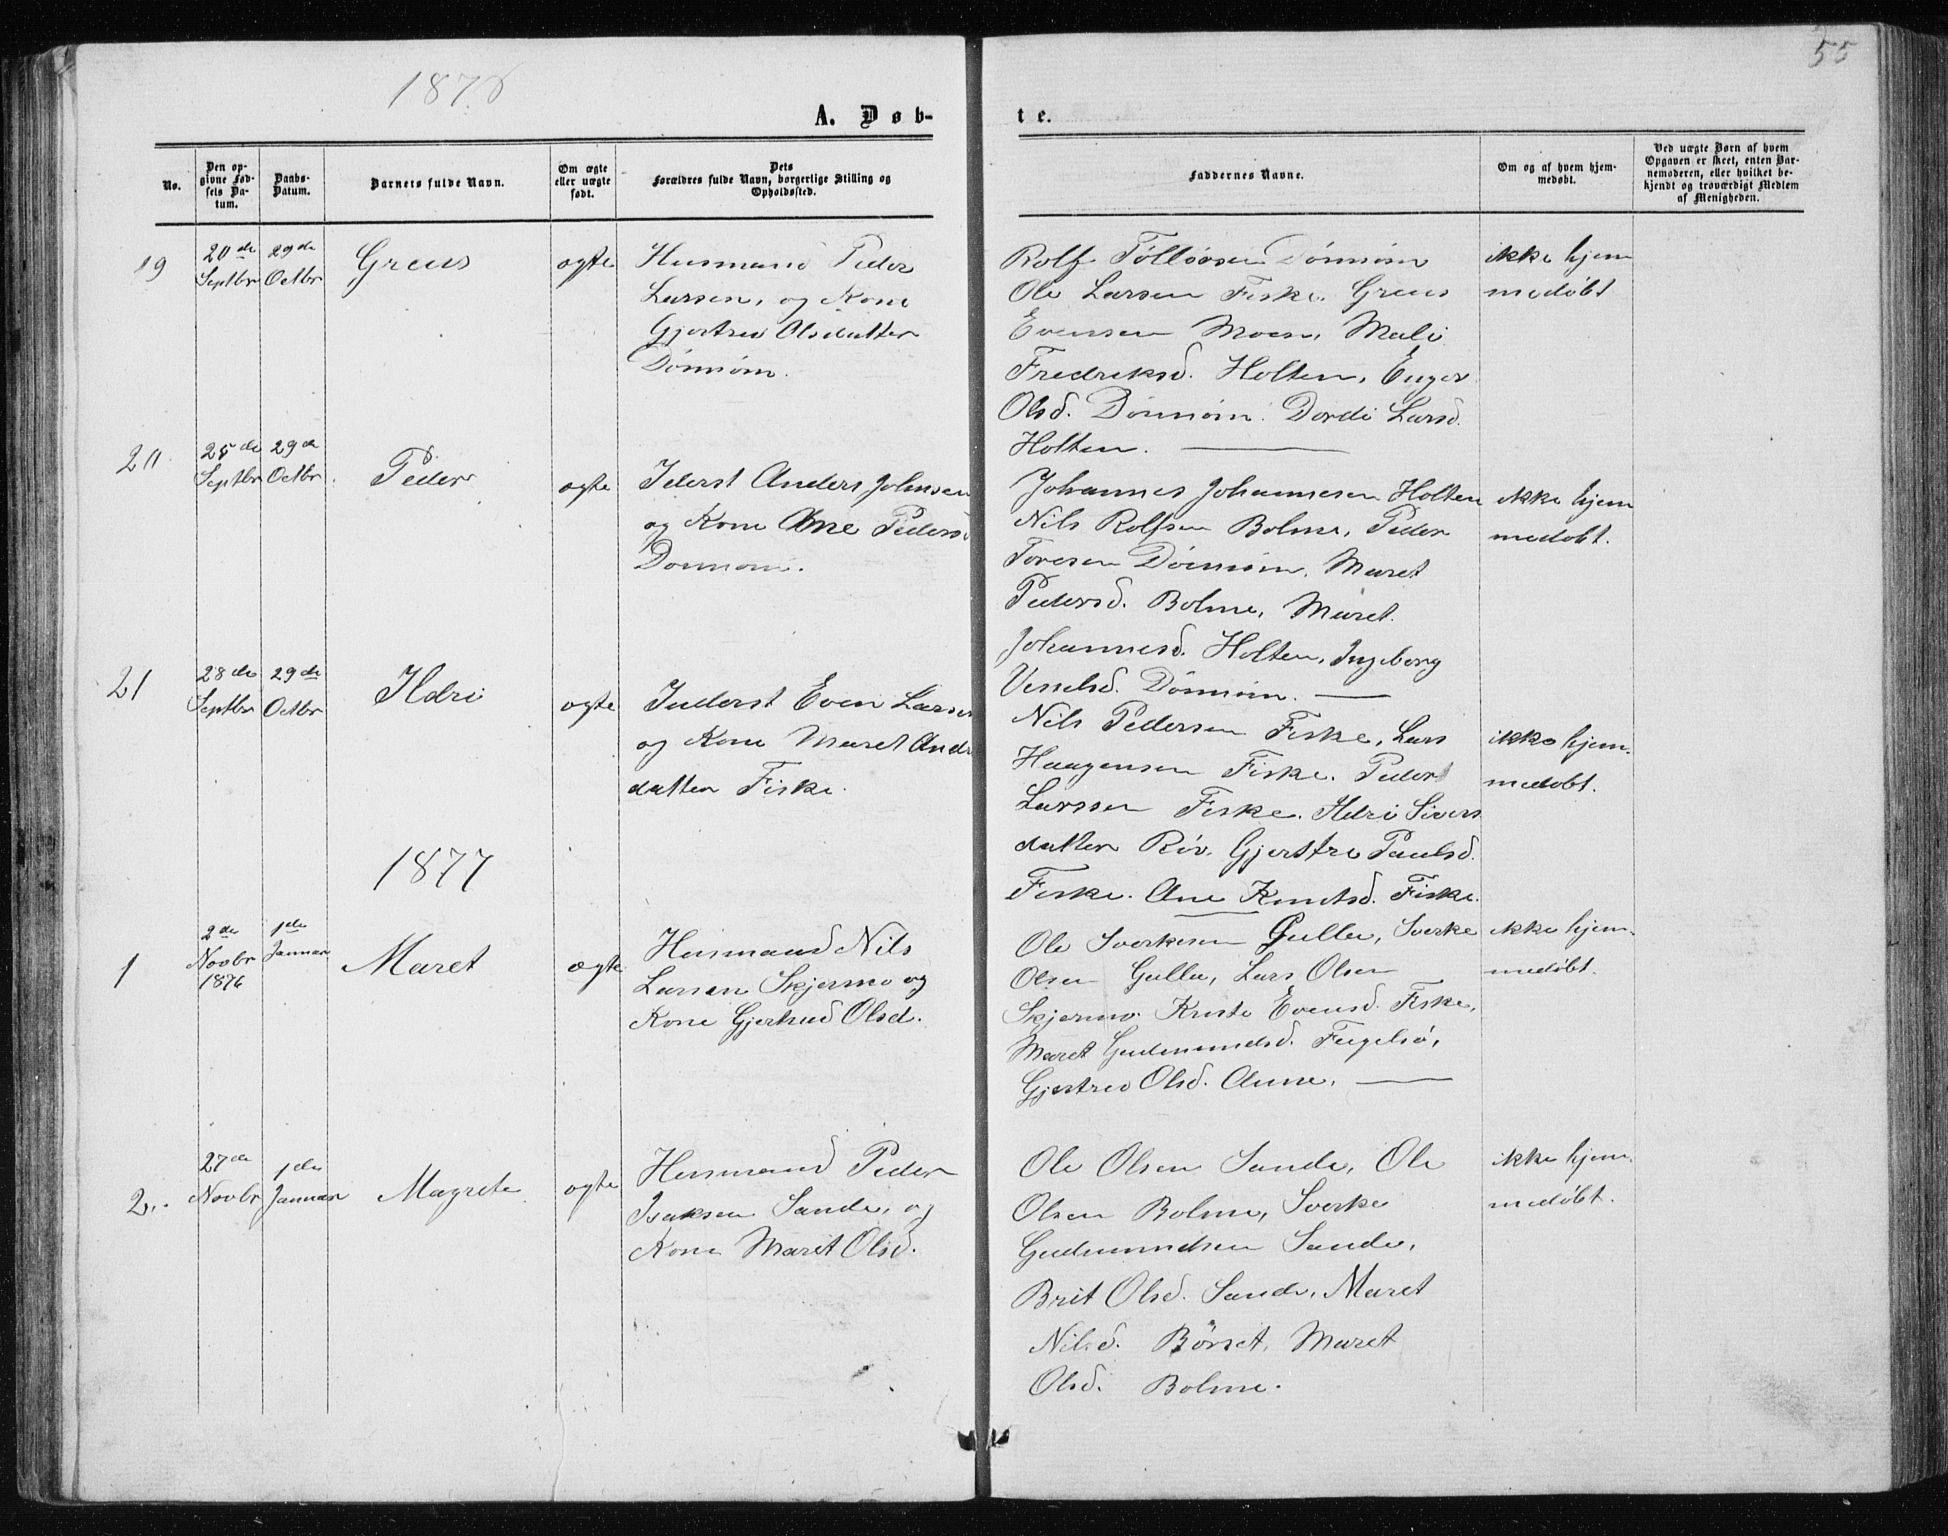 55
1876
A. Døb-
te.
No.
Den op-
givne Fød-
sels Da-
tum.
Daabs-
Datum.
Barnets fulde Navn.
Om ægte
eller uægte
født.
Dets
Forældres fulde Navn, borgerlige Stilling og
Opholdssted.
Faddernes Navne.
Om og af hvem hjem-
medøbt.
Ved uægte Børn af hvem
Opgaven er skeet, enten Bar-
nemoderen, eller hvilket be-
kjendt og troværdigt Medlem
af Menigheden.
19
20de
Septbr
29de
Octbr
Greus
ogte
Husmand Peder
Larsen, og Kone
Gjertrud Olsdatter
Dønnøm.
Rolf Tøllørsen Dønnøm
Ole Larsen Fiske. Greus
Evensen Moen, Mali
Fredriksd. Holten, Enger
Olsd. Dønnøm. Dordi Larsd.
Holten.
ikke hjem
medøbt
20
25de
Septbr
29de
Octbr
Peder
ogte
Iderst Anders Johnsen
og Kone Ane Pedersd
Donnom.
Johannes Johannesen Holten
Nils Rolfsen Bolme, Peder
Toresen Dønnøm, Maret
Pedersd. Bolme, Maret
Johannesd. Holten, Ingeborg
Dønnøm.
ikke hjem
medøbt.
21
28de
Septbr
29de
Octbr
Ildri
ogte
Inderst Even Larsen
og Kone Maret And
datter Fiske.
Nils Pedersen Fiske, Lars
Haagensen Fiske. Peder
Larssen Fiske. Ildri Sivers
datter Riv, Gjertre Paulsd.
Fiske. Ane Knutsd. Fiske.
ikke hjem-
medøbt.
1877
1
2de
Novbr
1876
1de
Januar
Maret
ægte
Husmand Nils
Larsen Skjermo og
Kone Gjertrud Olsd.
Ole Sverkesen Gulla, Sverke
Olsen Gulla, Lars Olsen
Skjermo. Kristi Evensd. Fiske,
Maret Gudmundsd. Fugelsø,
Gjertrud Olsd. Aune.
ikke hjem-
medøbt.
2.
27de
Novbr
1de
Januar
Magrete
ogte
Husmand Peder
Isaksen Sande, og
Kone Marit Olsd.
Ole Olsen Sande, Ole
Olsen Bolme, Sverke
Gudmundsen Sande,
Brit Olsd. Sande, Maret
Nilsd. Børset, Maret
Olsd. Bolme.
ikke hjem-
medøbt.